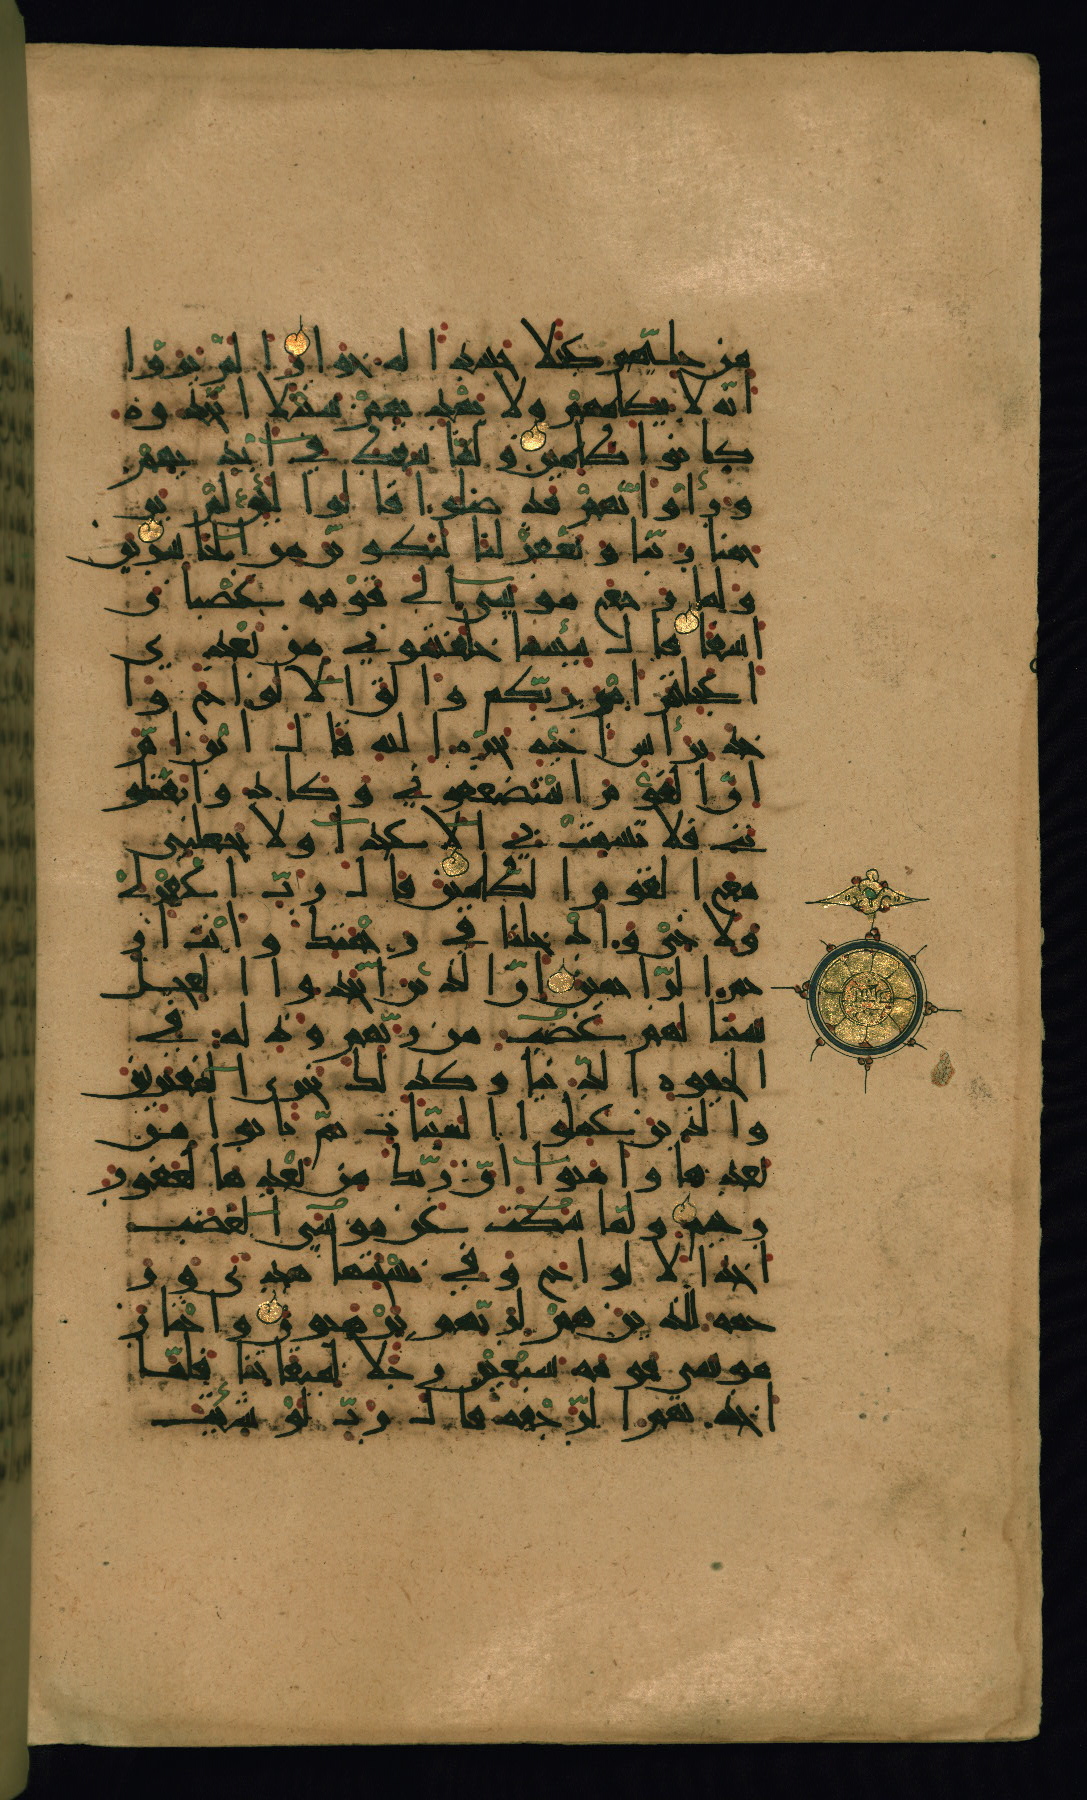 من حليهم عجلا جسدا له خوار ا لم يروا
انه لا يكلمهم ولا يهد يهم سبيلا اتخذ وه
كا نوا ظلمين و لما سقط في ا يد يهم
و ر ا وا انهم قد ضلوا قا لوا لئن لم ير
حمنا ر بنا و يغفر لنا لنكو نن من ا لخا سرين
و لما ر جع مو سى ا لى قو مه غضبا ن
ا سفا قا ل بئسما خلفتمو ني من بعد ي
ا عجلتم ا مر ر بكم و ا لقى ا لا لو ا ح و ا
خذ بر أ س ا خيه يجره ا ليه قا ل ا بن ا م
ا ن ا لقو م ا ستضعفو ني و كا د وا يقتلو
نني فلا تشمت بي ا لا عد ا ء ولا تجعلني
مع ا لقو م ا لظلمين قا ل ر ب ا غفر لي
ولا خي و ا د خلنا في ر حمتك و ا نت ا ر
حم ا لر ا حمين ا ن ا لذ ين ا تخذ و ا ا لعجل
سينا لهم غضب من ر بهم و ذ لة في
ا لحيوه ا لد نيا و كذ لك نجزي ا لمفترين
و ا لذ ين عملو ا ا لسيئا ت ثم تا بو ا من
بعد ها و ا منو ا ا ن ر بك من بعد ها لغفور
ر حيم و لما سكت عن مو سى ا لغضب
ا خذ ا لا لو ا ح و في نسختها هد ى و ر
حمه للذ ين هم لر بهم ير هبو ن و ا ختا ر
مو سى قو مه سبعين ر جلا لميقا تنا فلما
ا خذ تهم ا لر جفه قا ل ر ب لو شئت